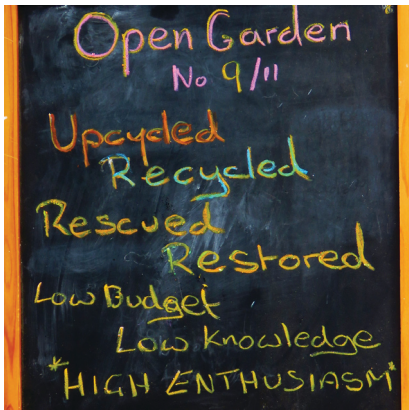 Open Garden
No 9/11
Upcycled
Recycled
Rescued
Restored
Low Budget
Low Knowledge
*HIGH ENTHUSIASM*